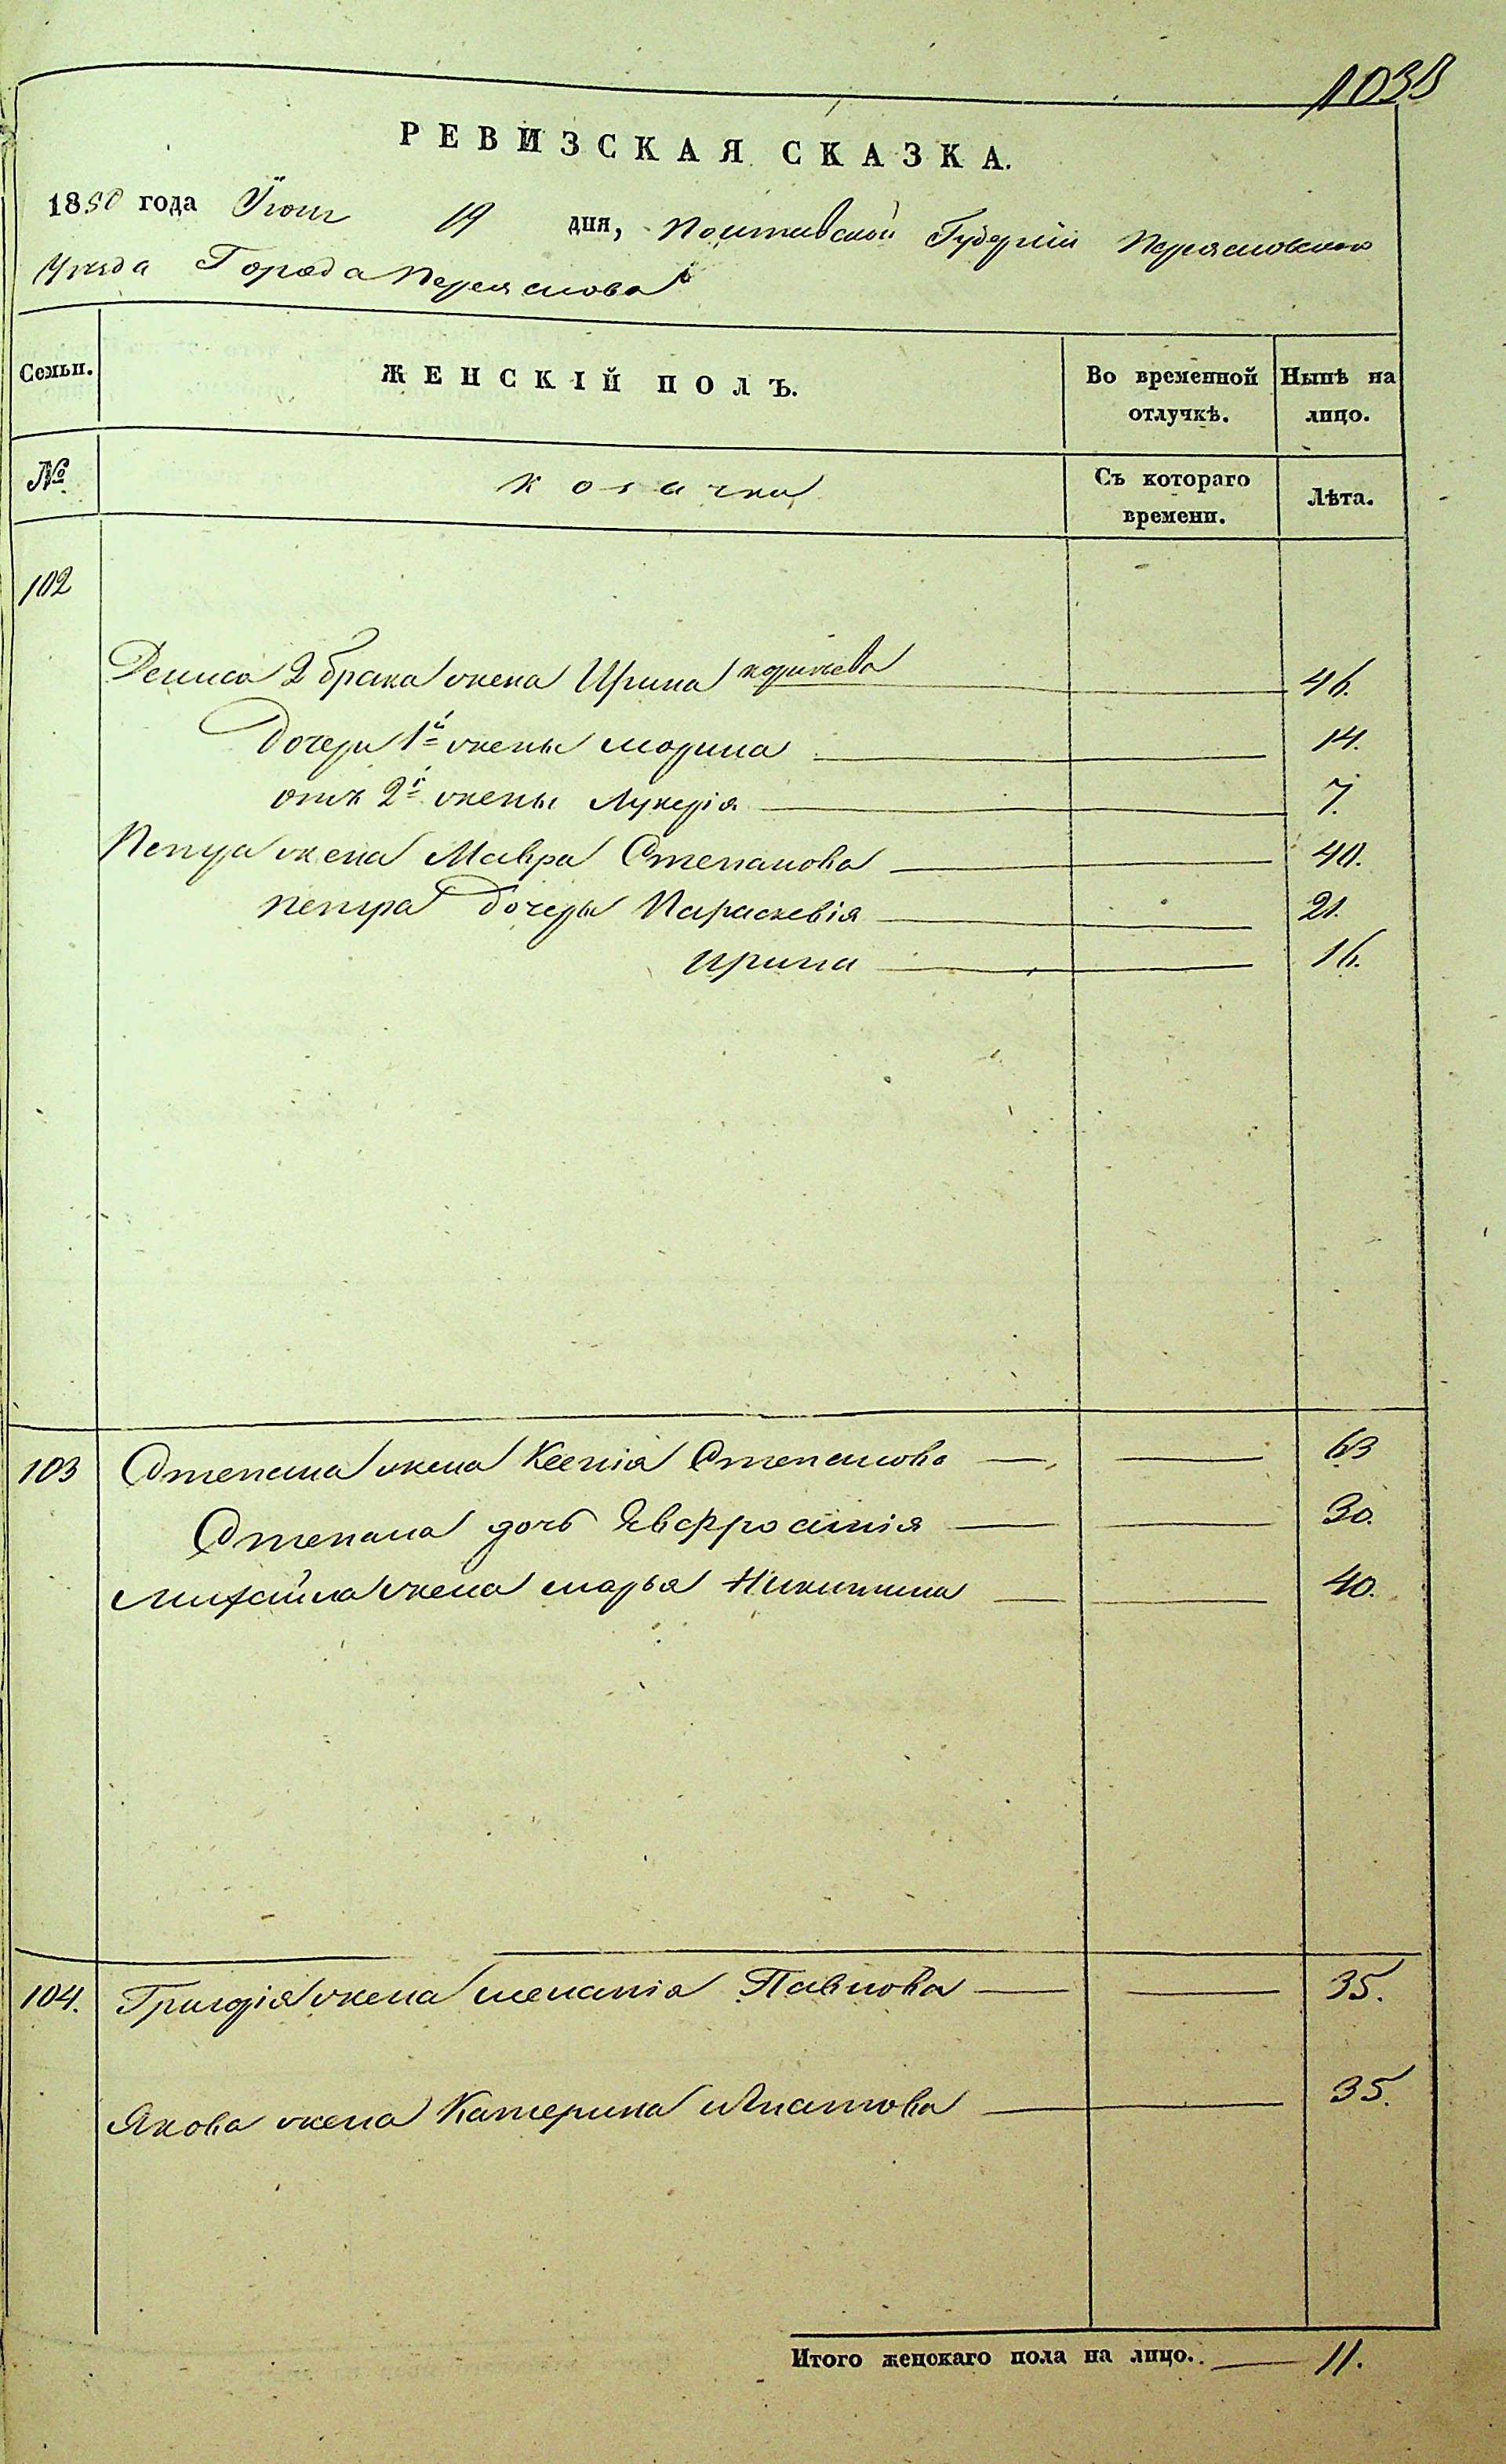 1033
РЕВИЗСКАЯ СКАЗКА.
1850 года Іюня 19 дня, Полтавской Губерніи Переясловского
Уезда Города Переяслова
Семьи. ЖЕНСКІЙ ПОЛЪ. Во временной отлучкѣ. Нынѣ на лицо.
№ козачки Съ котораго времени. Лѣта.
102
Дениса 2 брака жена Ирина 46.
Дочери 1й жены Марина 14.
отъ 2й жены Лукерія 7.
Петра жена Мавра Степанова 40.
Петра дочери Параскевія 21.
Ирина 16.
103 Степана жена Ксенія Степанова 63
Степана дочь Явфросинія 30.
Михайла жена Марья Никитина 40.
104. Григорія жена Меланія Павлова 35.
Якова жена Катерина Игнатова 35.
Итого женскаго пола на лицо. 11.